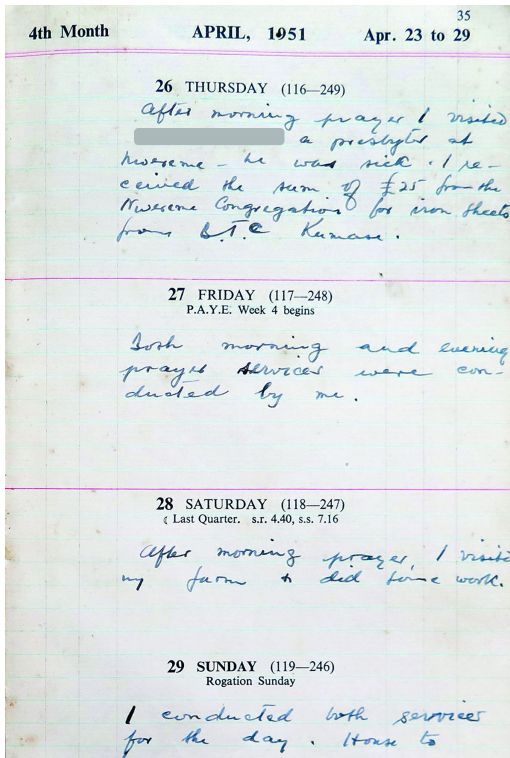 35
4th Month APRIL, 1951 Apr. 23 to 29
26 THURSDAY (116—249)
After morning prayer I visited
a presbyter at
Nwereme - he was sick. I re-
ceived the sum of £25 from the
Nwereme Congregation for iron sheets
from B.T.C Kumase.
27 FRIDAY (117—248)
P.A.Y.E. Week 4 begins
Both morning and evening
prayer services were con-
ducted by me.
28 SATURDAY (118—247)
☾ Last Quarter. s.r. 4.40, s.s. 7.16
After morning prayer, I visite
my farm & did some work.
29 SUNDAY (119—246)
Rogation Sunday
I conducted both services
for the day. House to